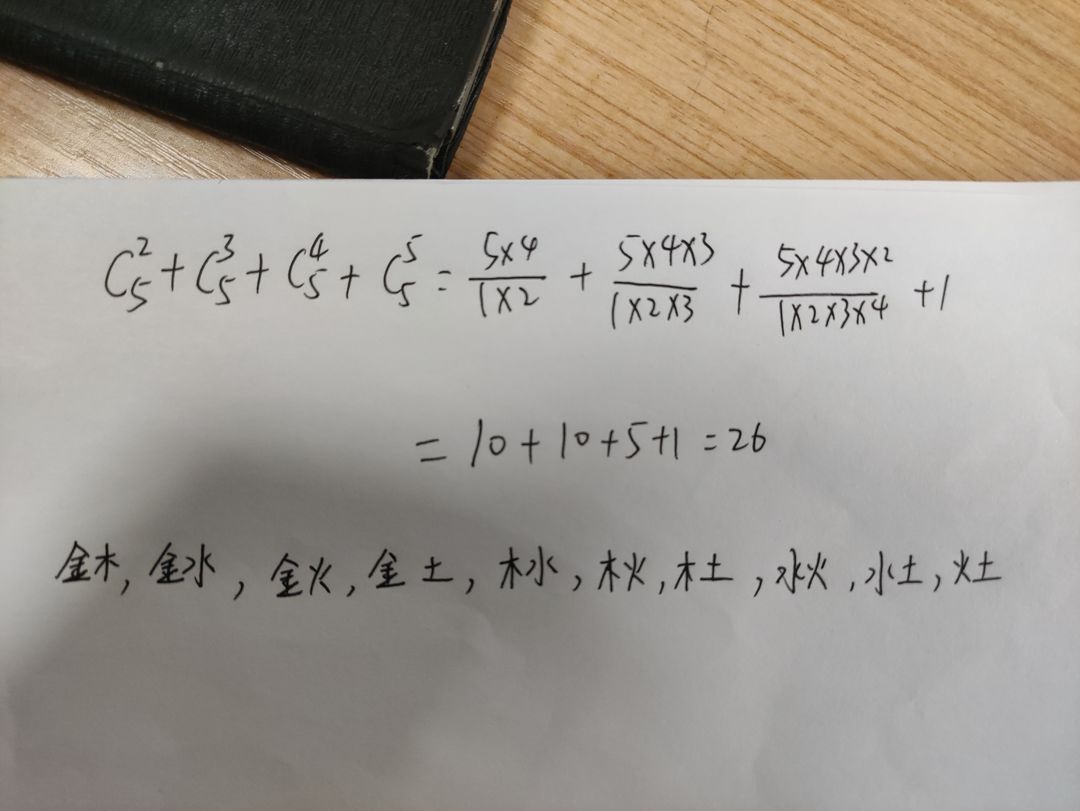 C₅² + C₅³ + C₅⁴ + C₅⁵ = (5×4)/(1×2) + (5×4×3)/(1×2×3) + (5×4×3×2)/(1×2×3×4) + 1
= 10 + 10 + 5 + 1 = 26
金木, 金水, 金火, 金土, 木水, 木火, 木土, 水火, 水土, 火土